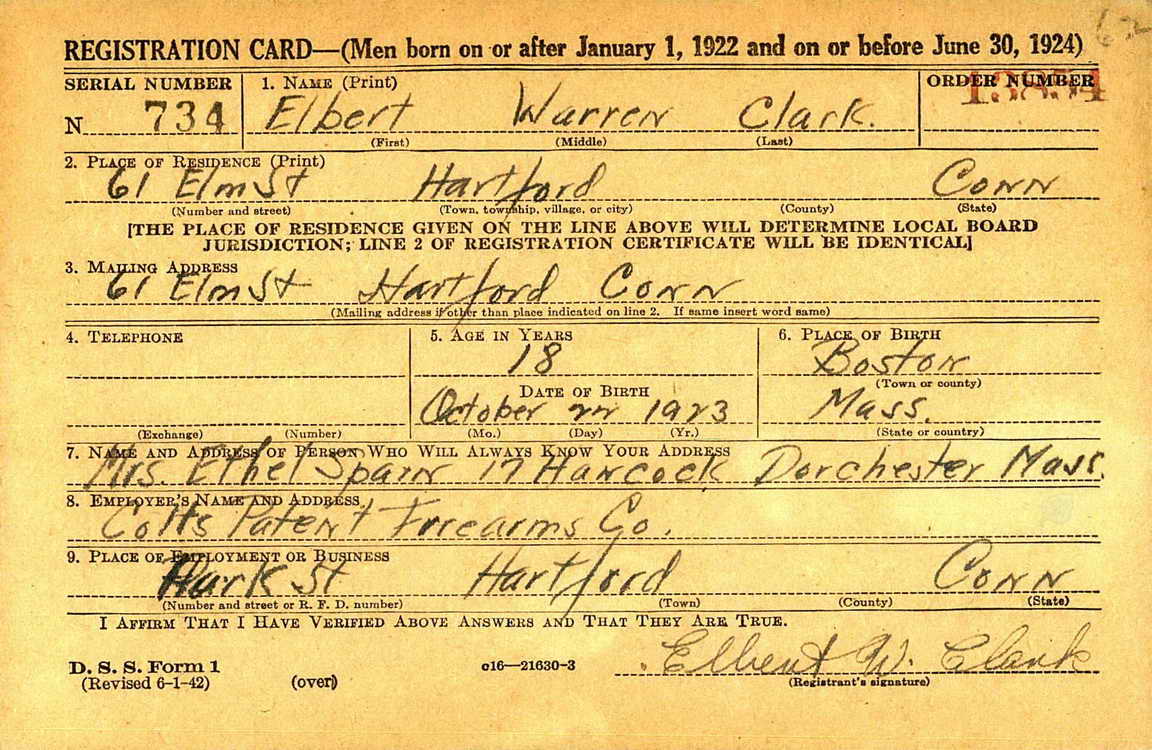 62
REGISTRATION CARD—(Men born on or after January 1, 1922 and on or before June 30, 1924)
SERIAL NUMBER 1. NAME (Print) ORDER NUMBER
N 734 Elbert Warren Clark.
(First) (Middle) (Last)
2. PLACE OF RESIDENCE (Print)
61 Elm St Hartford Conn
(Number and street) (Town, township, village, or city) (County) (State)
[THE PLACE OF RESIDENCE GIVEN ON THE LINE ABOVE WILL DETERMINE LOCAL BOARD
JURISDICTION; LINE 2 OF REGISTRATION CERTIFICATE WILL BE IDENTICAL]
3. MAILING ADDRESS
61 Elm St Hartford Conn
(Mailing address if other than place indicated on line 2. If same insert word same)
4. TELEPHONE 5. AGE IN YEARS 6. PLACE OF BIRTH
18 Boston
DATE OF BIRTH (Town or county)
October 22 1923 Mass.
(Exchange) (Number) (Mo.) (Day) (Yr.) (State or country)
7. NAME AND ADDRESS OF PERSON WHO WILL ALWAYS KNOW YOUR ADDRESS
Mrs. Ethel Spann 17 Hancock Dorchester Mass.
8. EMPLOYER'S NAME AND ADDRESS
Colts Patent Firearms Co.
9. PLACE OF EMPLOYMENT OR BUSINESS
St Hartford Conn
(Number and street or R. F. D. number) (Town) (County) (State)
I AFFIRM THAT I HAVE VERIFIED ABOVE ANSWERS AND THAT THEY ARE TRUE.
Elbert W. Clark
D. S. S. Form 1 c16—21630-3
(Revised 6-1-42) (over) (Registrant's signature)